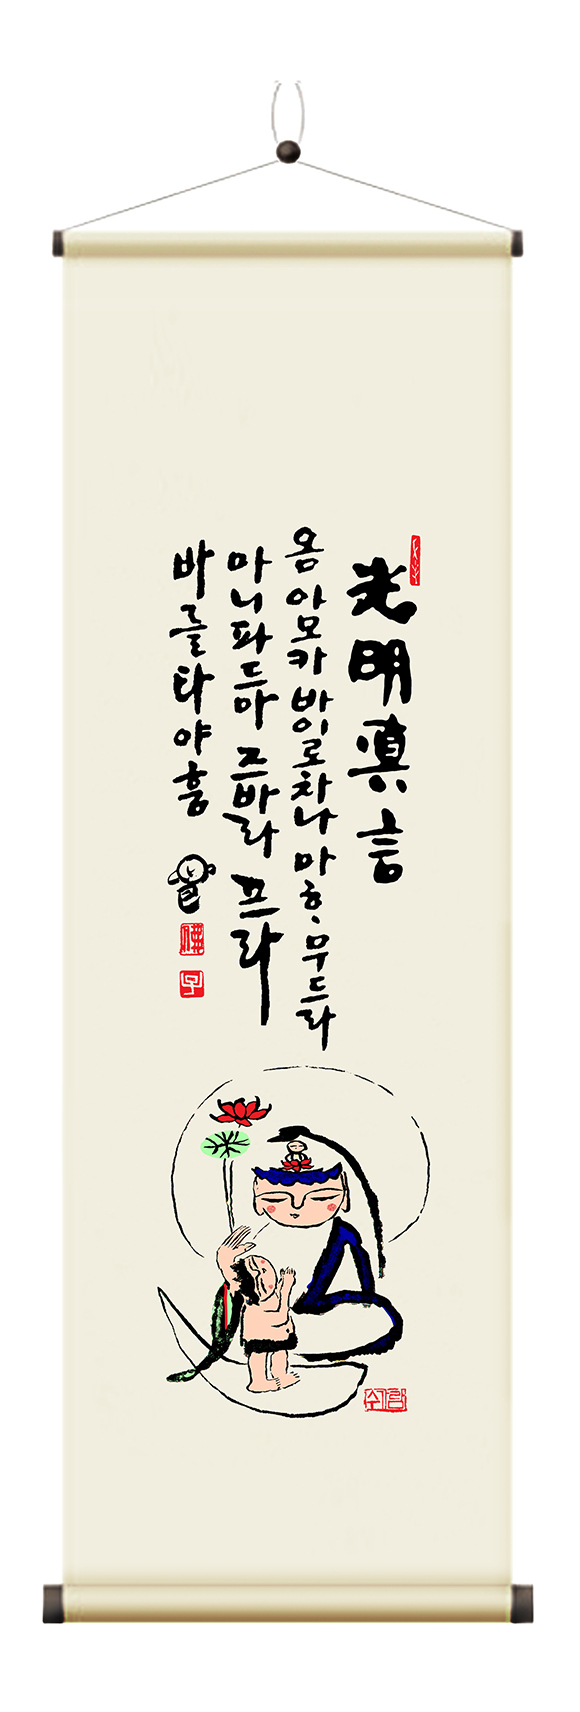 光明眞言
옴 아모카 바이로차나 마ᄒᆞ 무드라
마니파드마 즈바라 프라
바를타야 훔